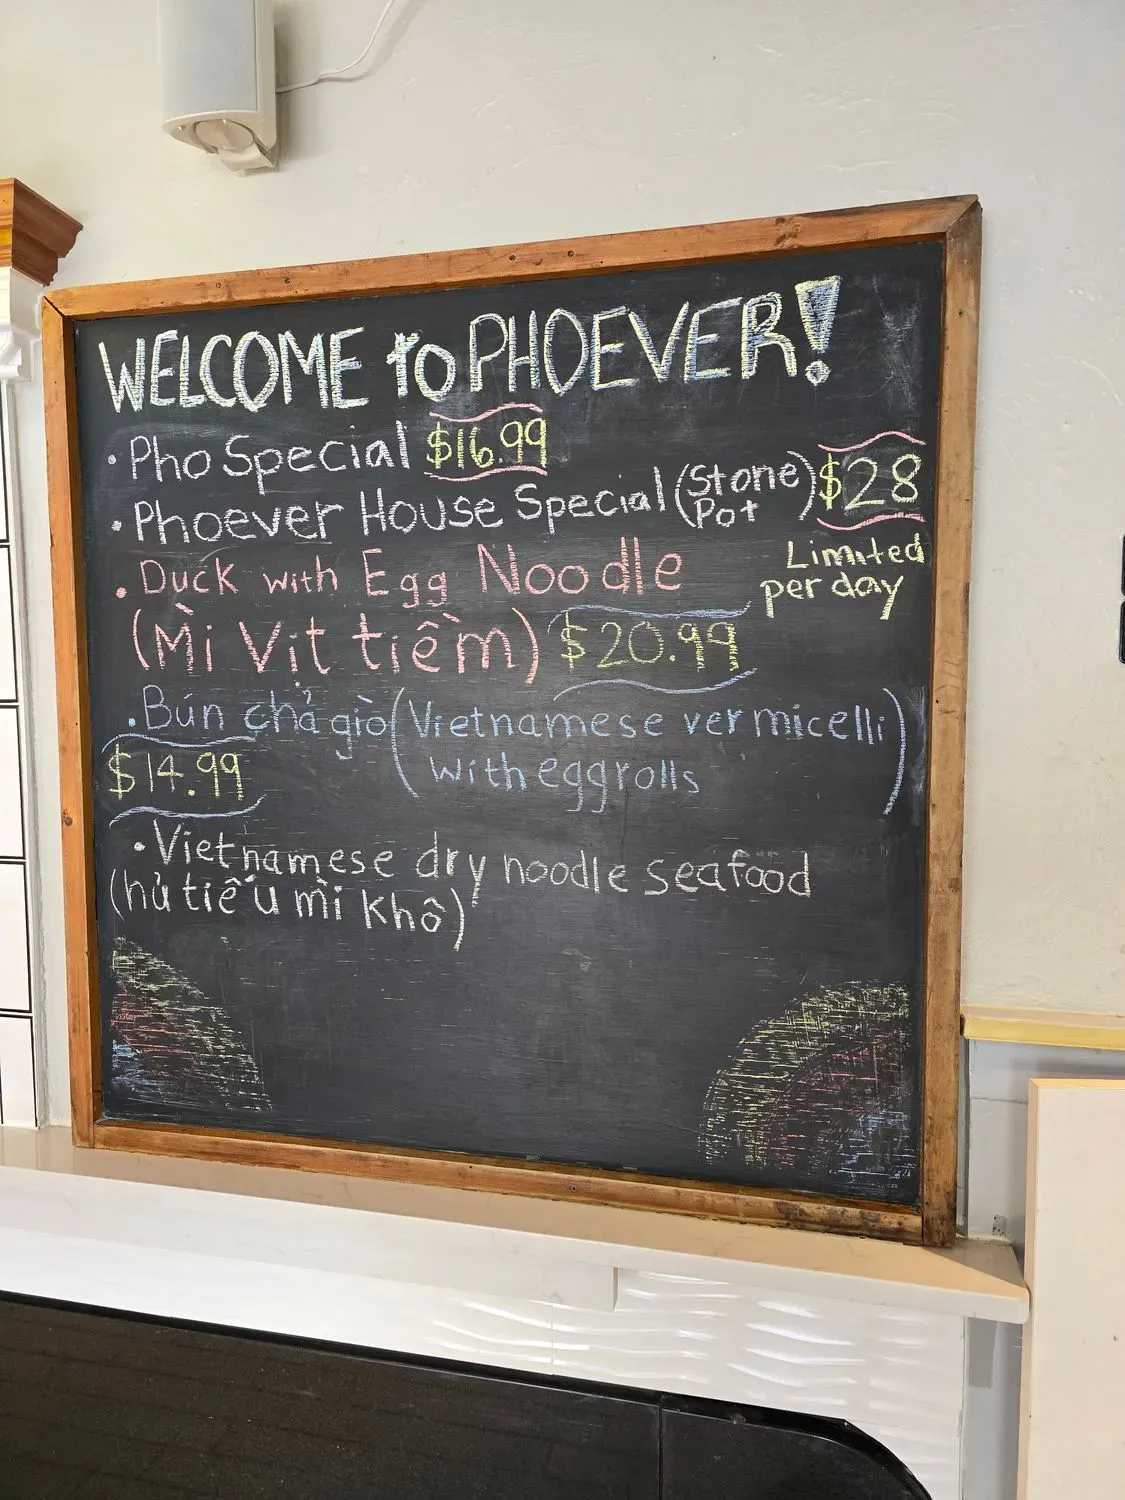 WELCOME to PHOEVER!
• Pho Special $16.99
• Phoever House Special (Stone Pot) $28
Limited
per day
• Duck with Egg Noodle
(Mì Vịt tiềm) $20.99
• Bún chả giò (Vietnamese vermicelli
with eggrolls)
$14.99
• Vietnamese dry noodle seafood
(hủ tiếu mì khô)